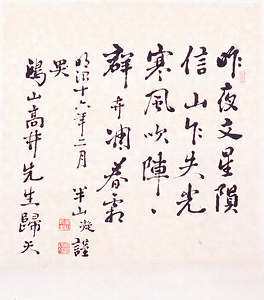 昨夜文星隕
信山乍失光
寒風吹陣々
群卉凋春霜
明治十六年二月 半山凝謹
哭
鴻山高井先生歸天